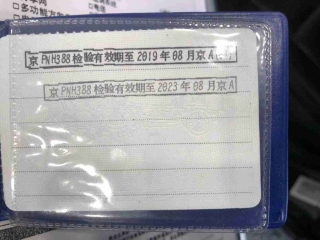 □多功能方
京PNH388检验有效期至2019年08月京A
京PNH388检验有效期至2023年08月京A